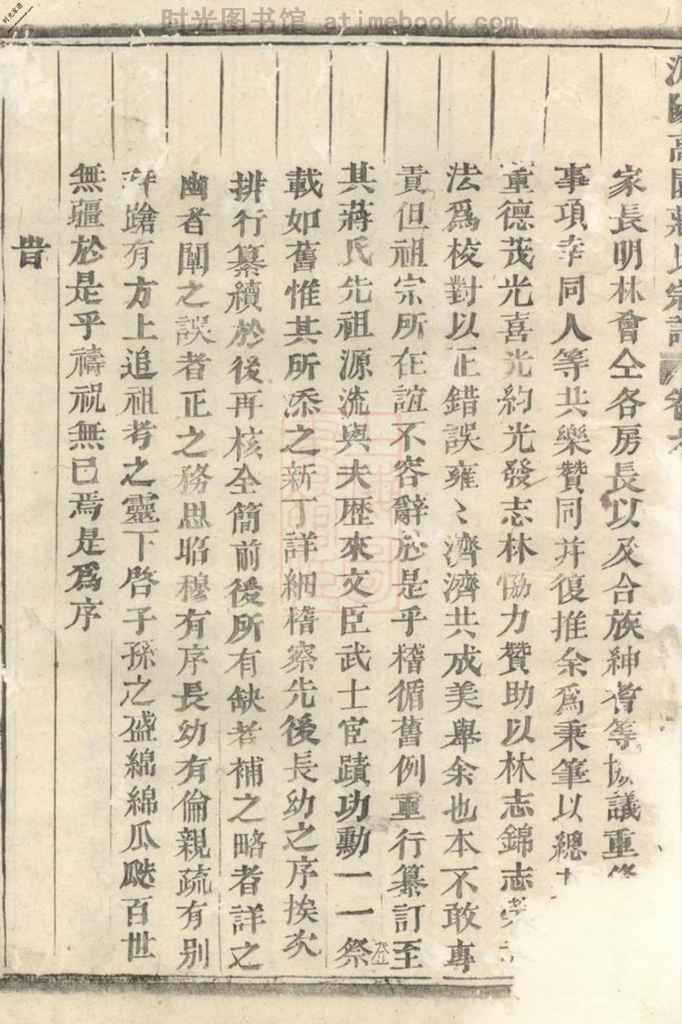 时光图书馆 atimebook.com
高園蔣氏宗譜
家長明林會仝各房長以及合族紳耆等協議重
事項幸同人等共樂贊同并復推余爲秉筆以總
董德茂光喜光約光發志林恊力贊助以林志錦志
法爲校對以正錯誤雍〻濟濟共成美舉余也本不敢專
責但祖宗所在誼不容辭於是乎稽循舊例重行纂訂至
其蔣氏先祖源流與夫歷來文臣武士宦蹟功勳一一祭
登
載如舊惟其所添之新丁詳細稽察先後長幼之序挨次
排行纂續於後再核全簡前後所有缺者補之略者詳之
幽者闡之誤者正之務思昭穆有序長幼有倫親疏有别
蹌有方上追祖考之靈下啓子孫之盛綿綿瓜瓞百世
無疆於是乎禱祝無已焉是爲序
旹